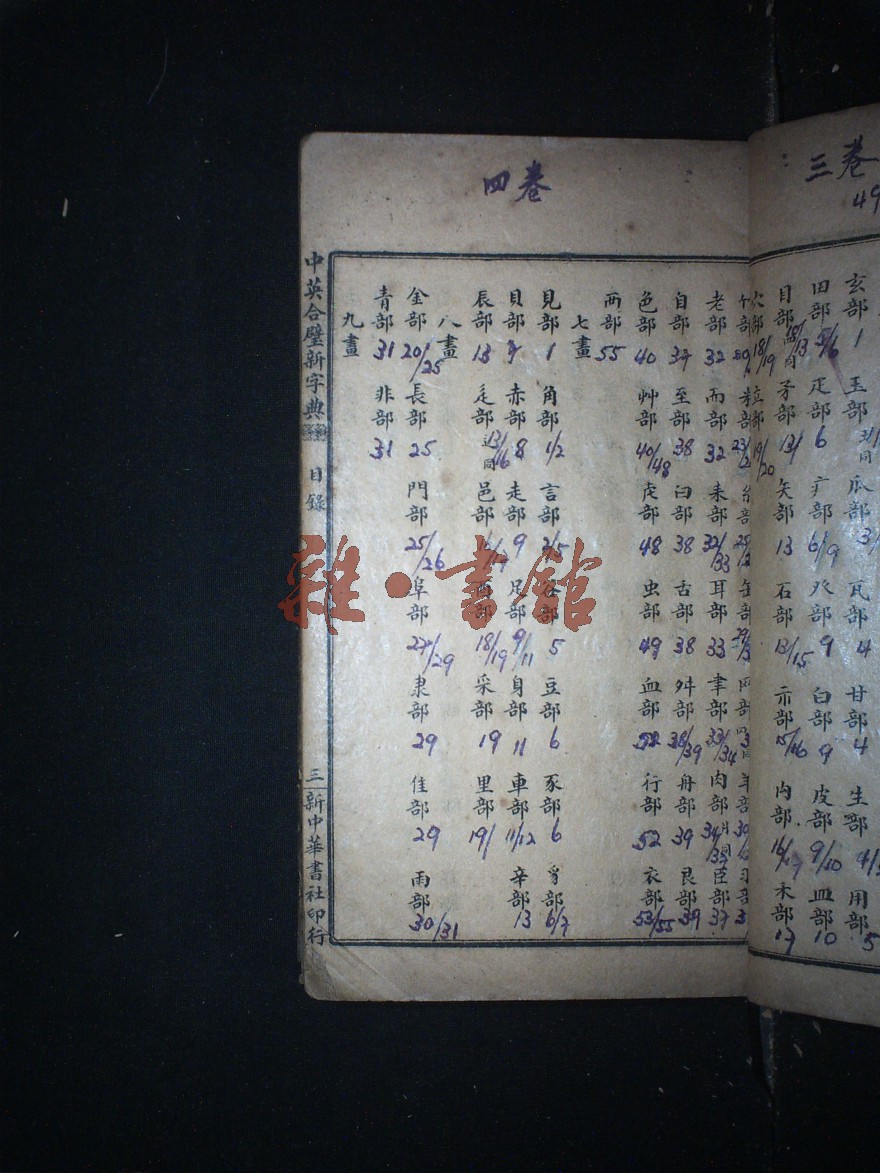 三卷
49
玄部 1 玉部
瓜部 瓦部 4 甘部 4 生部 用部 5
田部 疋部 6 疒部 6/9 癶部 9 白部 9 皮部 9/10 皿部 10
目部 矛部 13/ 矢部 13 石部 13/15 示部 15/16 禸部 16/17 禾部 17
穴部 18/19 立部 19/20
四卷
竹部 米部 糸部 缶部 网部 羊部 羽部
老部 32 而部 32 耒部 32/33 耳部 33 聿部 33/34 肉部 月同 34/35 臣部 37
自部 37 至部 38 臼部 38 舌部 38 舛部 38/39 舟部 39 艮部 39
色部 40 艸部 40/48 虍部 48 虫部 49 血部 52 行部 52 衣部 53/55
襾部 55
七畫
見部 1 角部 1/2 言部 2/5 谷部 5 豆部 6 豕部 6 豸部 6/7
貝部 7 赤部 8 走部 9 足部 9/11 身部 11 車部 11/12 辛部 13
辰部 13 辵部 辶同 13/16 邑部 16/17 酉部 18/19 釆部 19 里部 19/
八畫
金部 20/25 長部 25 門部 25/26 阜部 27/29 隶部 29 隹部 29 雨部 30/31
青部 31 非部 31
九畫
中英合璧新字典 目錄 三 新中華書社印行
雜·書館